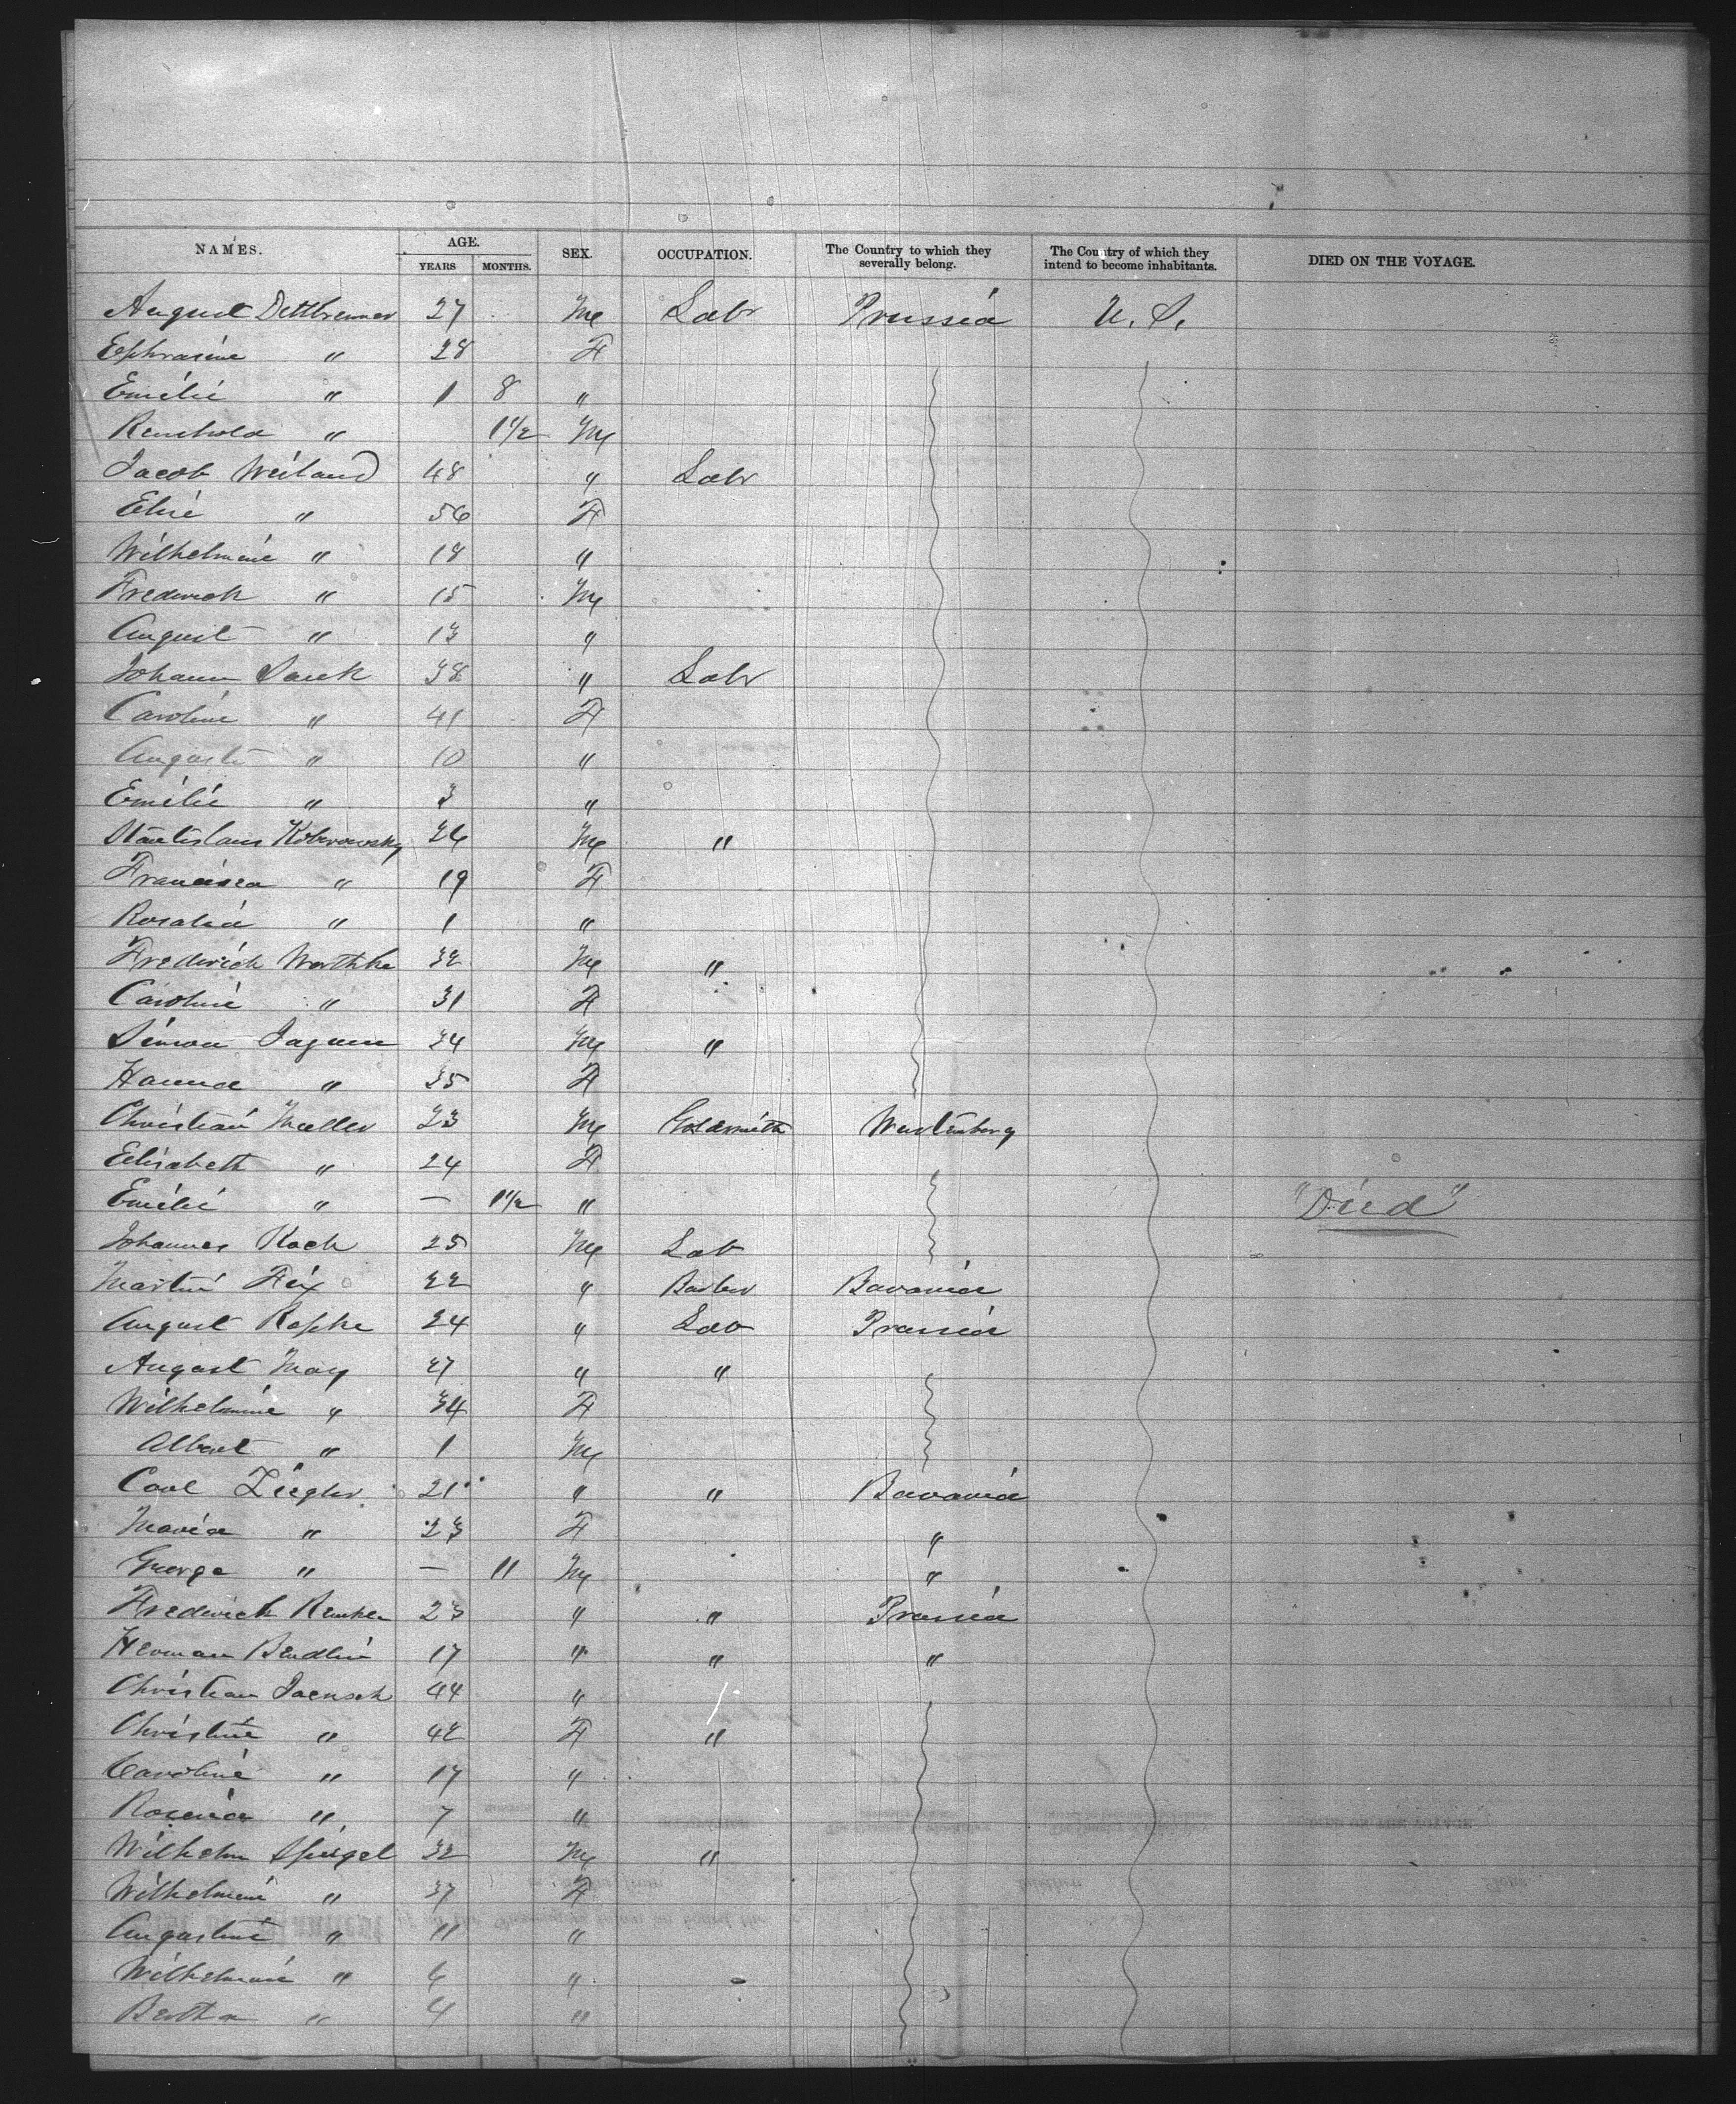 NAMES. AGE. SEX. OCCUPATION. The Country to which they severally belong. The Country of which they intend to become inhabitants. DIED ON THE VOYAGE.
YEARS MONTHS.
August Dettbrenner 27 M Labr Prussia U. S.
Ephrasine " 28 F
Emilie " 1 8 "
Reinhold " 1 1/2 M
Jacob Weiland 48 " Labr
Elise " 56 F
Wilhelmine " 18 "
Frederich " 15 M
August " 13 "
Johann Janek 38 " Labr
Caroline " 41 F
Auguste " 10 "
Emilie " 3 "
Stanislaus 26 M "
Francisca " 19 F
Rosalia " 1 "
Frederich Worthke 32 M "
Caroline " 31 F
Simon 34 M "
Hanna " 35 F
Christian Muller 23 M Goldsmith Wurtemberg
Elisabeth " 24 F
Emilie " — 1 1/2 " "Died"
Johannes Koch 25 M Lab
Martin Fix 22 " Barber Bavaria
August Kopke 24 " Lab Prussia
August May 27 " "
Wilhelmine " 34 F
Albert " 1 M
Carl Ziegler 21 " " Bavaria
Maria " 23 F "
George " — 11 M "
Frederich Renken 23 " " Prussia
Herman Bendlin 17 " " "
Christian Jaensch 44 "
Christine " 42 F "
Caroline " 17 "
Rosina " 7 "
Wilhelm Spiegel 32 M "
Wilhelmine " 37 F
Augustine " 11 "
Wilhelmine " 6 "
Bertha " 4 "